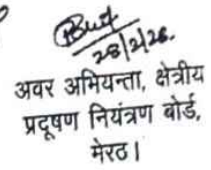 28/2/26.
अवर अभियन्ता, क्षेत्रीय
प्रदूषण नियंत्रण बोर्ड,
मेरठ।